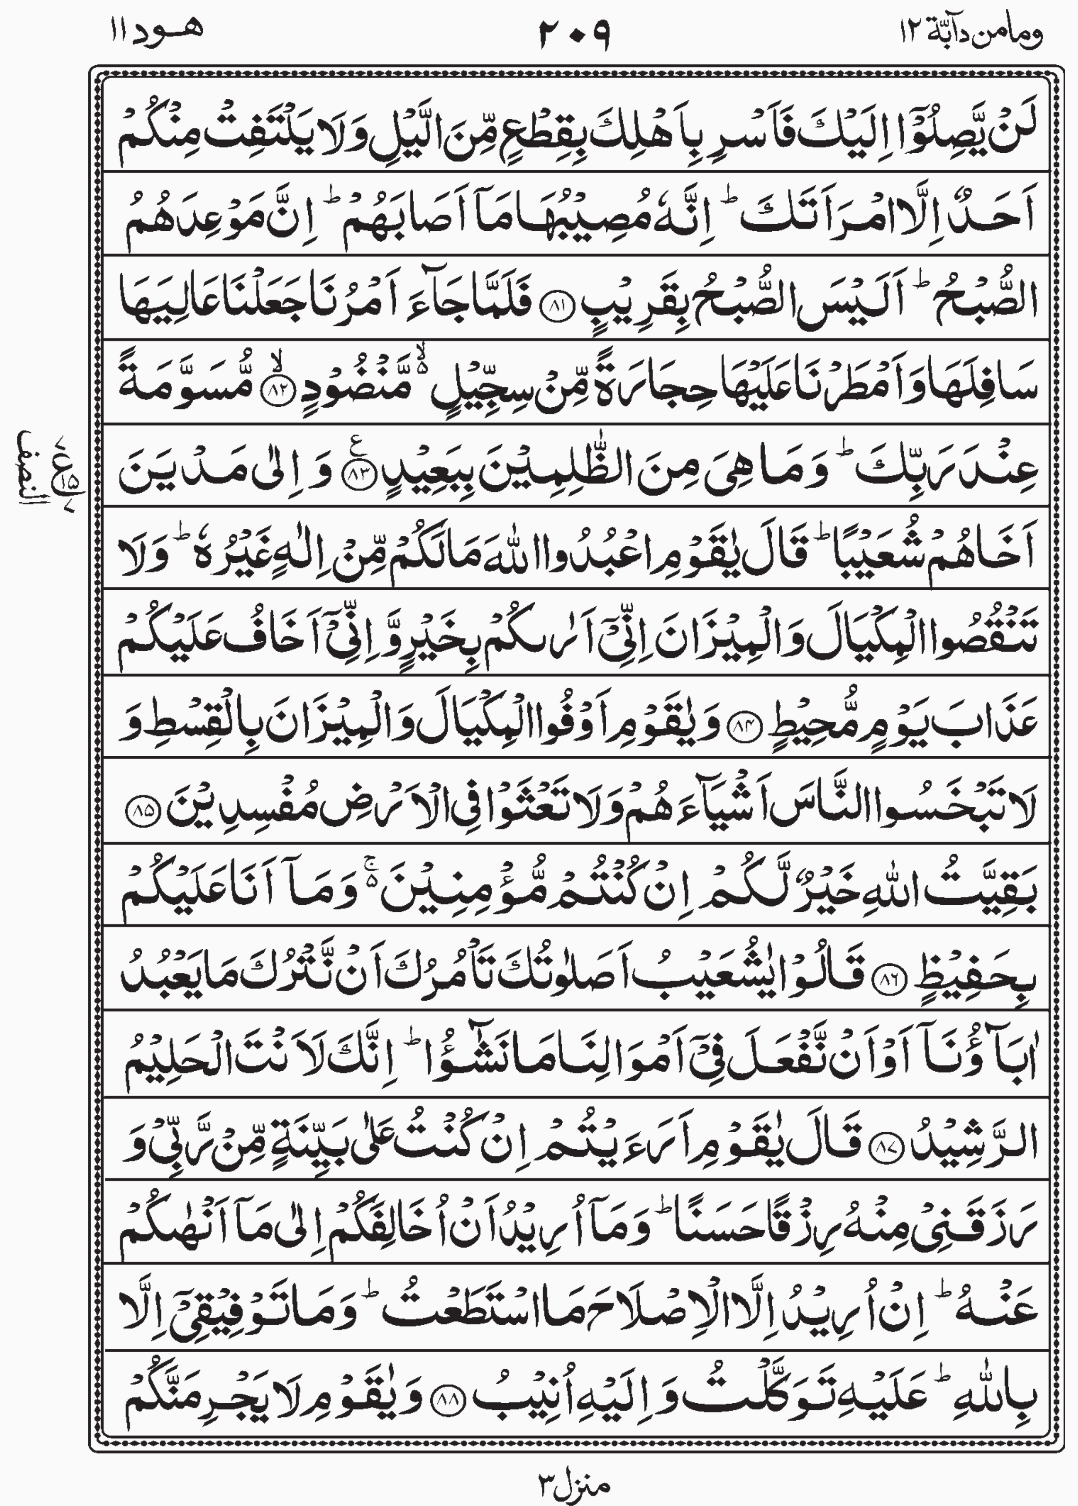 ومامن دآبّة ١٢
٢٠٩
هود ١١
لَنْ يَّصِلُوْٓا اِلَيْكَ فَاَسْرِ بِاَهْلِكَ بِقِطْعٍ مِّنَ الَّيْلِ وَلَا يَلْتَفِتْ مِنْكُمْ
اَحَدٌ اِلَّا امْرَاَتَكَ ؕ اِنَّهٗ مُصِيْبُهَا مَآ اَصَابَهُمْ ؕ اِنَّ مَوْعِدَهُمُ
الصُّبْحُ ؕ اَلَيْسَ الصُّبْحُ بِقَرِيْبٍ ﴿٨١﴾ فَلَمَّا جَآءَ اَمْرُنَا جَعَلْنَا عَالِيَهَا
سَافِلَهَا وَاَمْطَرْنَا عَلَيْهَا حِجَارَةً مِّنْ سِجِّيْلٍ ۙ۬ مَّنْضُوْدٍ ﴿٨٢﴾ۙ مُّسَوَّمَةً
عِنْدَ رَبِّكَ ؕ وَمَا هِيَ مِنَ الظّٰلِمِيْنَ بِبَعِيْدٍ ﴿٨٣﴾ع وَاِلٰى مَدْيَنَ
ع ١٥ ٧ ٨
النصف
اَخَاهُمْ شُعَيْبًا ؕ قَالَ يٰقَوْمِ اعْبُدُوا اللّٰهَ مَا لَكُمْ مِّنْ اِلٰهٍ غَيْرُهٗ ؕ وَلَا
تَنْقُصُوا الْمِكْيَالَ وَالْمِيْزَانَ اِنِّيْٓ اَرٰىكُمْ بِخَيْرٍ وَّاِنِّيْٓ اَخَافُ عَلَيْكُمْ
عَذَابَ يَوْمٍ مُّحِيْطٍ ﴿٨٤﴾ وَيٰقَوْمِ اَوْفُوا الْمِكْيَالَ وَالْمِيْزَانَ بِالْقِسْطِ وَ
لَا تَبْخَسُوا النَّاسَ اَشْيَآءَهُمْ وَلَا تَعْثَوْا فِى الْاَرْضِ مُفْسِدِيْنَ ﴿٨٥﴾
بَقِيَّتُ اللّٰهِ خَيْرٌ لَّكُمْ اِنْ كُنْتُمْ مُّؤْمِنِيْنَ ۬ۚ وَمَآ اَنَا عَلَيْكُمْ
بِحَفِيْظٍ ﴿٨٦﴾ قَالُوْا يٰشُعَيْبُ اَصَلٰوتُكَ تَاْمُرُكَ اَنْ نَّتْرُكَ مَا يَعْبُدُ
اٰبَآؤُنَآ اَوْ اَنْ نَّفْعَلَ فِيْٓ اَمْوَالِنَا مَا نَشٰٓؤُا ؕ اِنَّكَ لَاَنْتَ الْحَلِيْمُ
الرَّشِيْدُ ﴿٨٧﴾ قَالَ يٰقَوْمِ اَرَءَيْتُمْ اِنْ كُنْتُ عَلٰى بَيِّنَةٍ مِّنْ رَّبِّيْ وَ
رَزَقَنِيْ مِنْهُ رِزْقًا حَسَنًا ؕ وَمَآ اُرِيْدُ اَنْ اُخَالِفَكُمْ اِلٰى مَآ اَنْهٰىكُمْ
عَنْهُ ؕ اِنْ اُرِيْدُ اِلَّا الْاِصْلَاحَ مَا اسْتَطَعْتُ ؕ وَمَا تَوْفِيْقِيْٓ اِلَّا
بِاللّٰهِ ؕ عَلَيْهِ تَوَكَّلْتُ وَاِلَيْهِ اُنِيْبُ ﴿٨٨﴾ وَيٰقَوْمِ لَا يَجْرِمَنَّكُمْ
منزل ٣